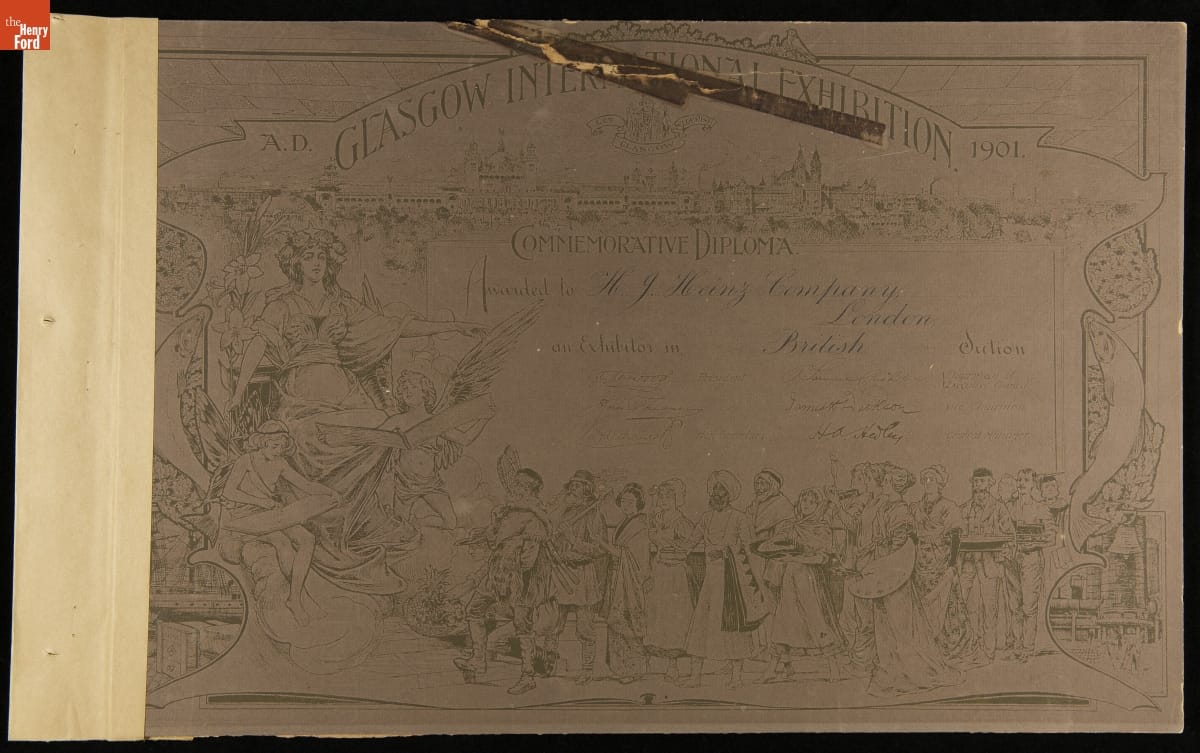 the
Henry
Ford
GLASGOW INTERNATIONAL EXHIBITION
A.D. 1901.
LET GLASGOW FLOURISH
COMMEMORATIVE DIPLOMA.
Awarded to H. J. Heinz Company,
London
an Exhibitor in British Section
President Chairman of
Executive Council
Vice Chairman
H. A. Hedley General Manager